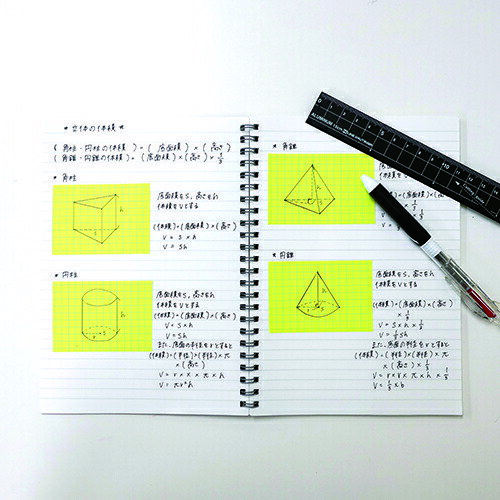 * 立体の体積 *
(角柱・円柱の体積) = (底面積) × (高さ)
(角錐・円錐の体積) = (底面積) × (高さ) × 1/3
* 角柱
底面積をS, 高さをh
体積をVとする
(体積) = (底面積) × (高さ)
V = S × h
V = Sh
h
S
* 円柱
底面積をS, 高さをh
体積をVとする
(体積) = (底面積) × (高さ)
V = S × h
V = Sh
また、底面の半径をrとすると
(体積) = (半径) × (半径) × π
× (高さ)
V = r × r × π × h
V = πr²h
h
r
S
* 角錐
h
S
* 円錐
底面積をS, 高さをh
体積をVとする
(体積) = (底面積) × (高さ)
× 1/3
V = S × h × 1/3
V = 1/3 Sh
また、底面の半径をrとすると
(体積) = (半径) × (半径) × π
× (高さ) × 1/3
V = r × r × π × h × 1/3
h
r
S
0 1 2 3 4 5 6 7 8 9 10 11 12 13